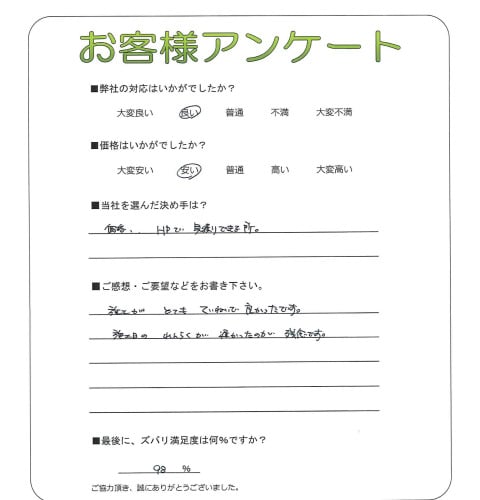 お客様アンケート
■弊社の対応はいかがでしたか？
大変良い 良い 普通 不満 大変不満
■価格はいかがでしたか？
大変安い 安い 普通 高い 大変高い
■当社を選んだ決め手は？
価格、HPで見積りできる所。
■ご感想・ご要望などをお書き下さい。
施工が とても ていねいで 良かったです。
施工日の れんらくが 遅かったのが 残念です。
■最後に、ズバリ満足度は何％ですか？
98 ％
ご協力頂き、誠にありがとうございました。